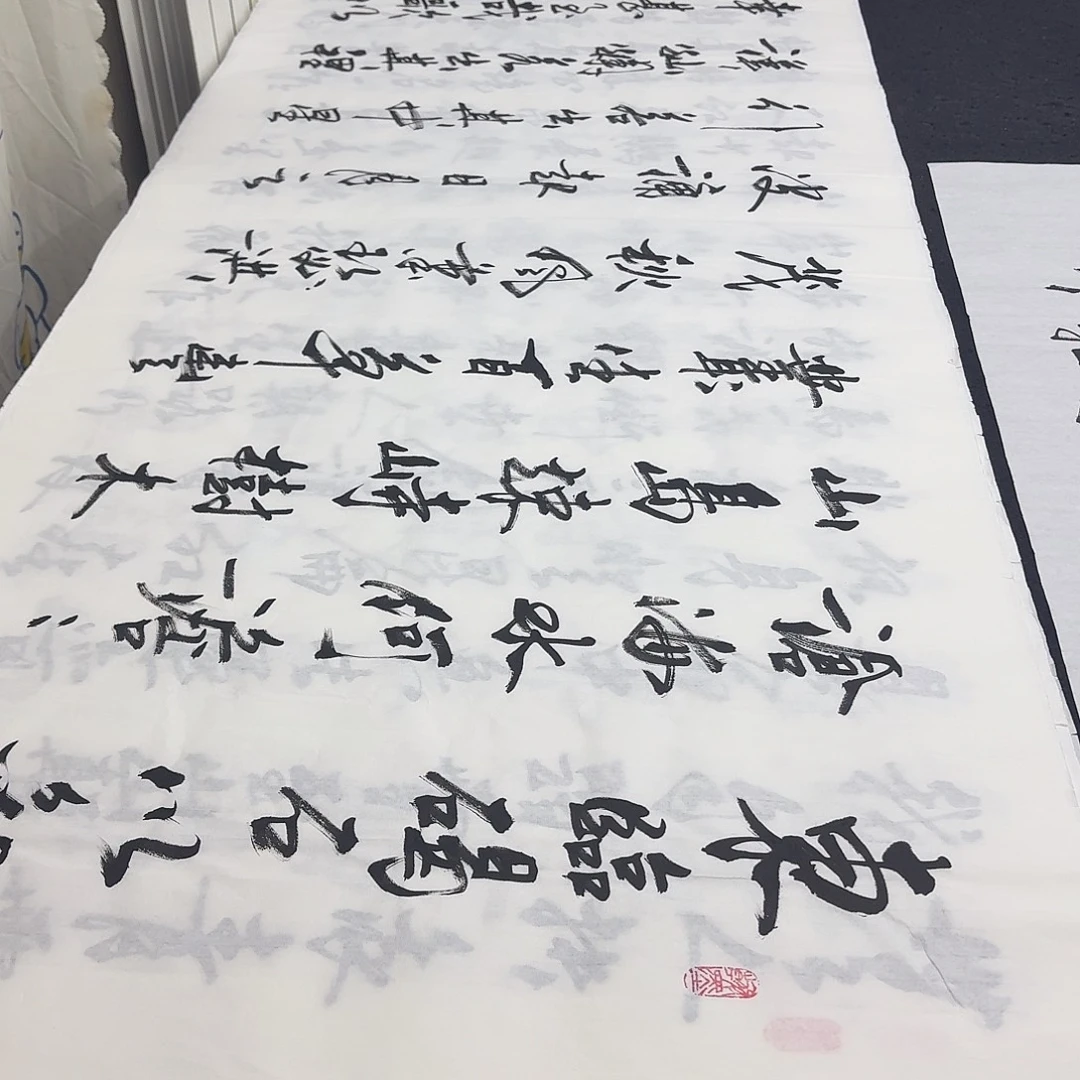 東臨碣石以觀
滄海水何澹澹
山島竦峙樹木
叢生百草豐
茂秋風蕭瑟洪
波涌起日月之
行若出其中星
漢燦爛若出其裏
幸甚至哉歌以